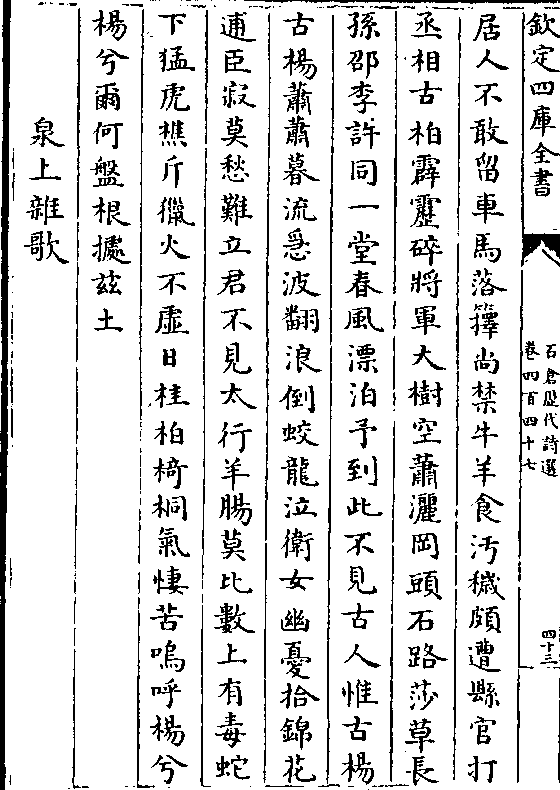 欽定四庫全書
石倉歷代詩選
卷四百四十七
四十三
居人不敢留車馬落籜尚禁牛羊食汚穢頗遭縣官打
丞相古柏霹靂碎將軍大樹空蕭灑岡頭石路莎草長
孫邵李許同一堂春風漂泊予到此不見古人惟古楊
古楊蕭蕭暮流急波翻浪倒蛟龍泣衛女幽憂拾錦花
逋臣寂莫愁難立君不見太行羊腸莫比數上有毒蛇
下猛虎樵斤獵火不虛日桂柏椅桐氣悽苦嗚呼楊兮
楊兮爾何盤根據茲土
泉上雜歌